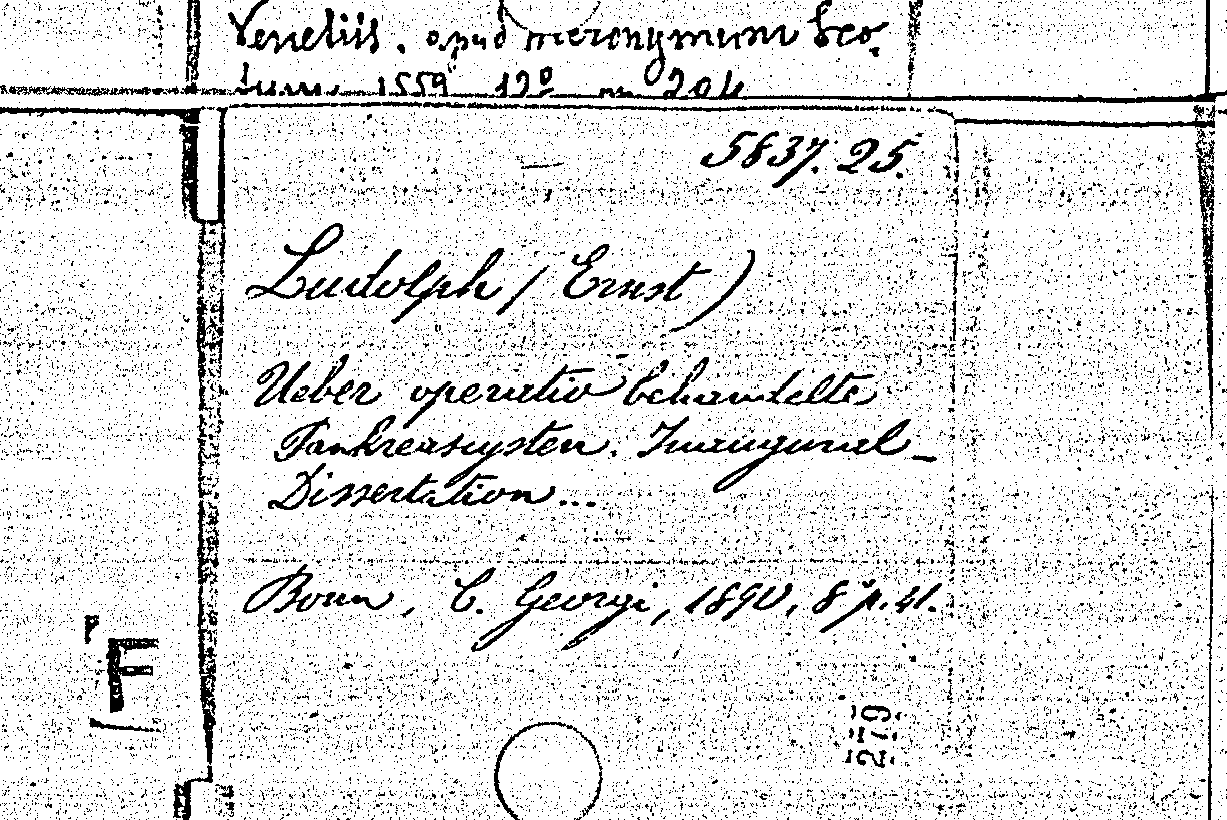 Venetiis, apud Hieronymum Sco-
tum, 1559 12º pp. 204
5837. 25.
Ludolph (Ernst)
Ueber operativ behandelte
Pankreascysten. Inaugural-
Dissertation...
Bonn, C. Georgi, 1890, 8º p. 41.
F
279